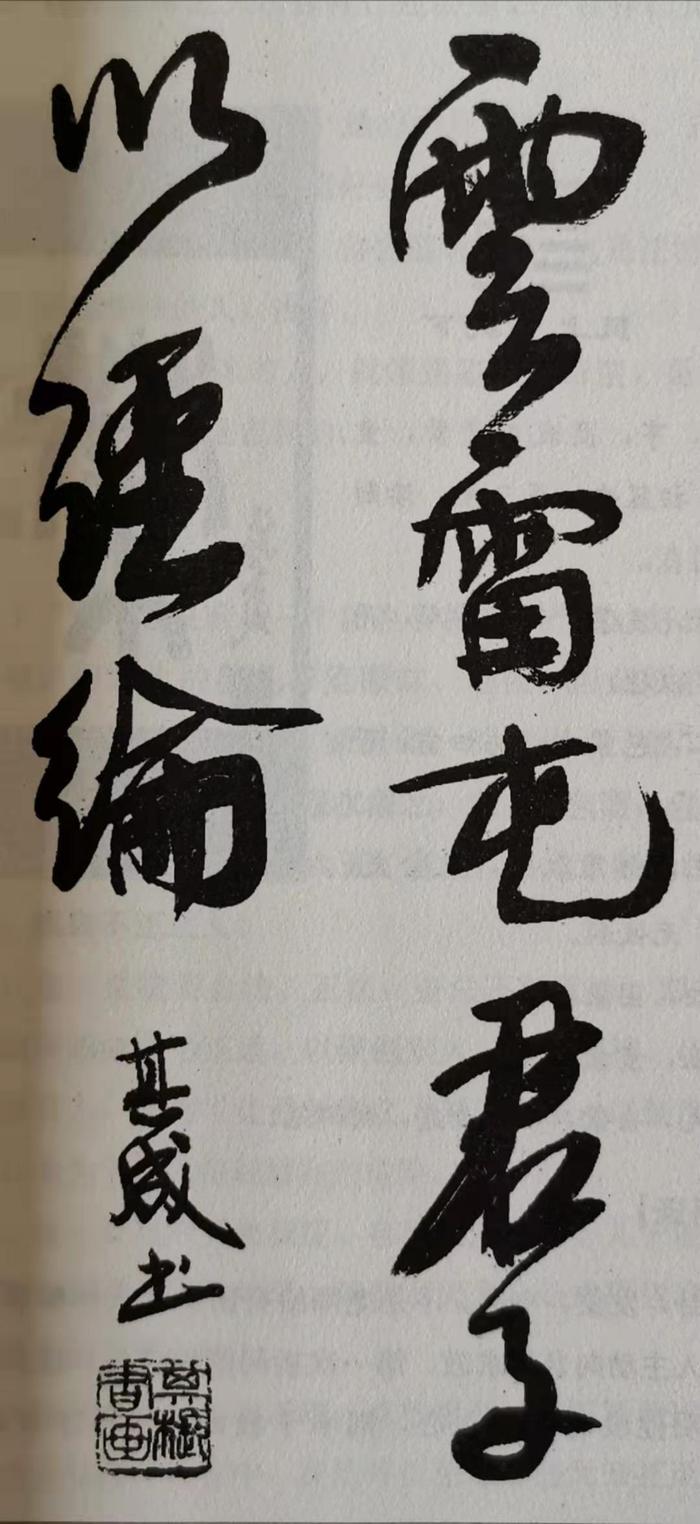 雲雷屯君子
以經綸
其成书